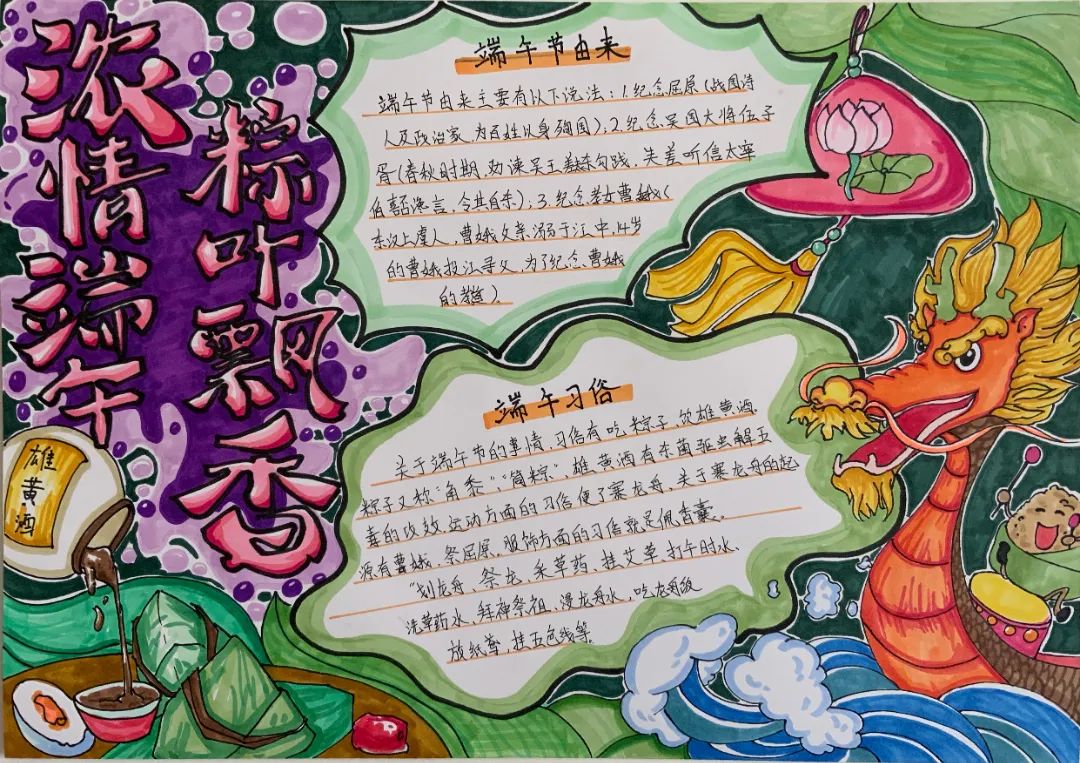 浓情端午
粽叶飘香
端午节由来
端午节由来主要有以下说法：1.纪念屈原（战国诗
人及政治家，为百姓以身殉国）；2.纪念吴国大将伍子
胥（春秋时期，劝谏吴王 勾践，夫差听信太宰
伯嚭谗言，令其自杀）；3.纪念孝女曹娥（
东汉上虞人，曹娥父亲溺于江中，14岁
的曹娥投江寻父，为了纪念曹娥
的孝道）
端午习俗
关于端午节的事情，习俗有吃粽子，饮雄黄酒。
粽子又称“角黍”、“筒粽”雄黄酒有杀菌驱虫解五
毒的功效，运动方面的习俗便了赛龙舟，关于赛龙舟的起
源有曹娥、祭屈原，服饰方面的习俗就是佩香囊。
“划龙舟、祭龙、采草药、挂艾草、打午时水、
洗草药水、拜神祭祖、浸龙舟水，吃龙舟饭
放纸鸢，挂五色线等。
雄黄酒